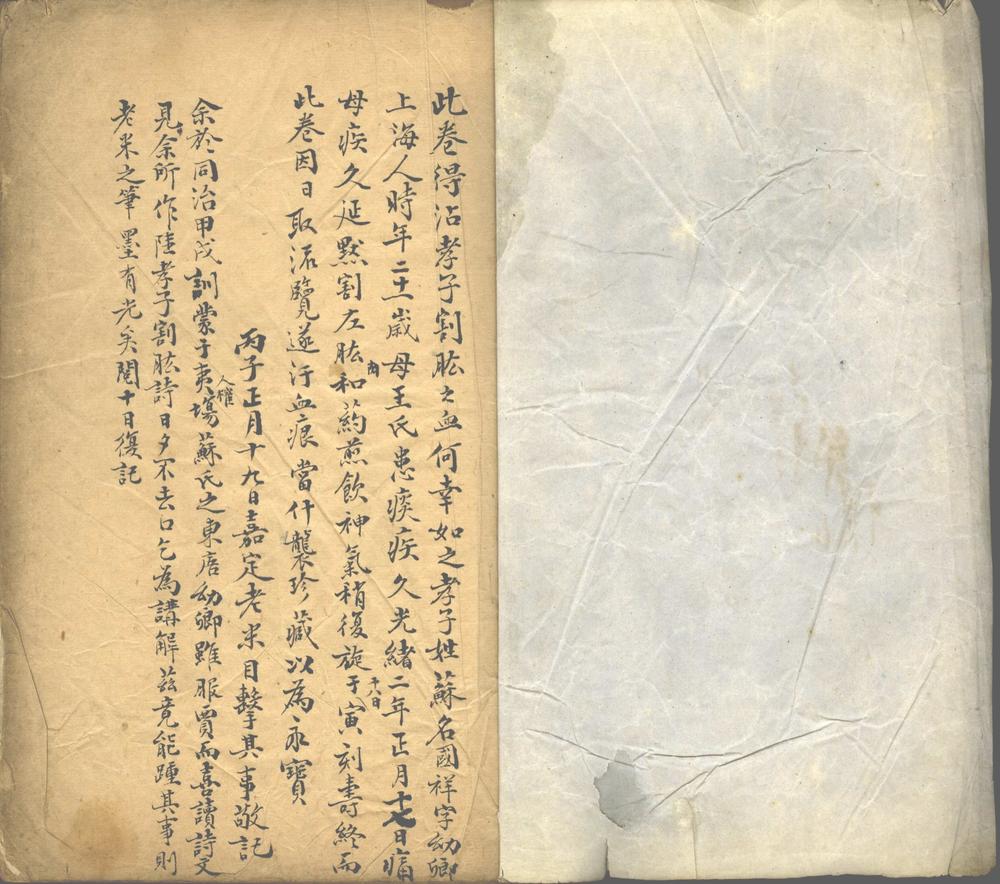 此卷得沾孝子割肱之血何幸如之孝子姓蘇名國祥字幼卿
上海人時年二十一歲母王氏患痰疾久光緒二年正月十七日痛
母疾久延默割左肱肉和葯煎飲神氣稍復旋于十八日寅刻壽終而
此卷因日取流覽遂汙血痕當什襲珍藏以為永寶
丙子正月十九日嘉定老米目擊其事敬記
余於同治甲戌訓蒙于夷場蘇氏之東席幼卿雖服賈而喜讀詩文
見余所作陸孝子割肱詩日夕不去口乞為講解茲竟能踵其事則
老米之筆墨有光矣閱十日復記